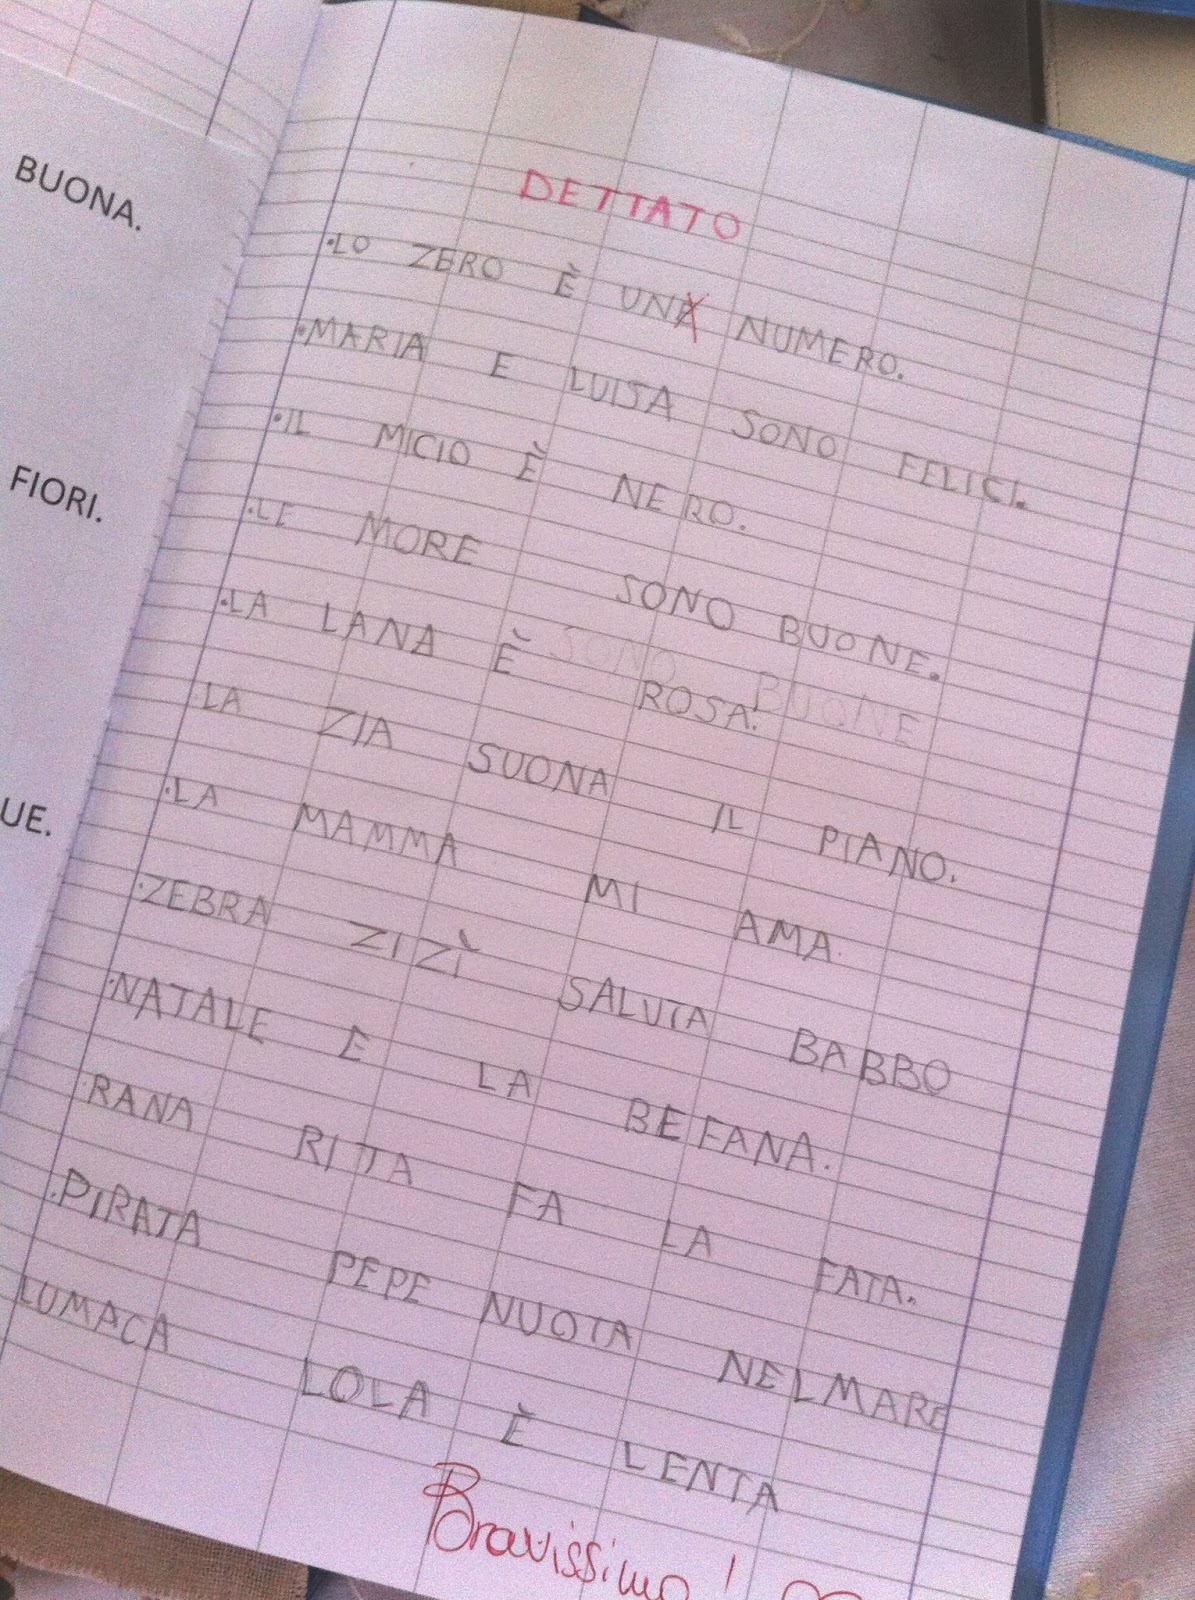 BUONA.
FIORI.
UE.
DETTATO
•LO ZERO È UNA NUMERO.
•MARIA E LUISA SONO FELICI.
•IL MICIO È NERO.
•LE MORE SONO BUONE.
SONO BUONE
•LA LANA È ROSA.
•LA ZIA SUONA IL PIANO.
•LA MAMMA MI AMA.
•ZEBRA ZIZÌ SALUTA BABBO
•NATALE E LA BEFANA.
•RANA RITTA FA LA FATA.
•PIRATA PEPE NUOTA NELMARE
LUMACA LOLA È LENTA
Bravissimo!